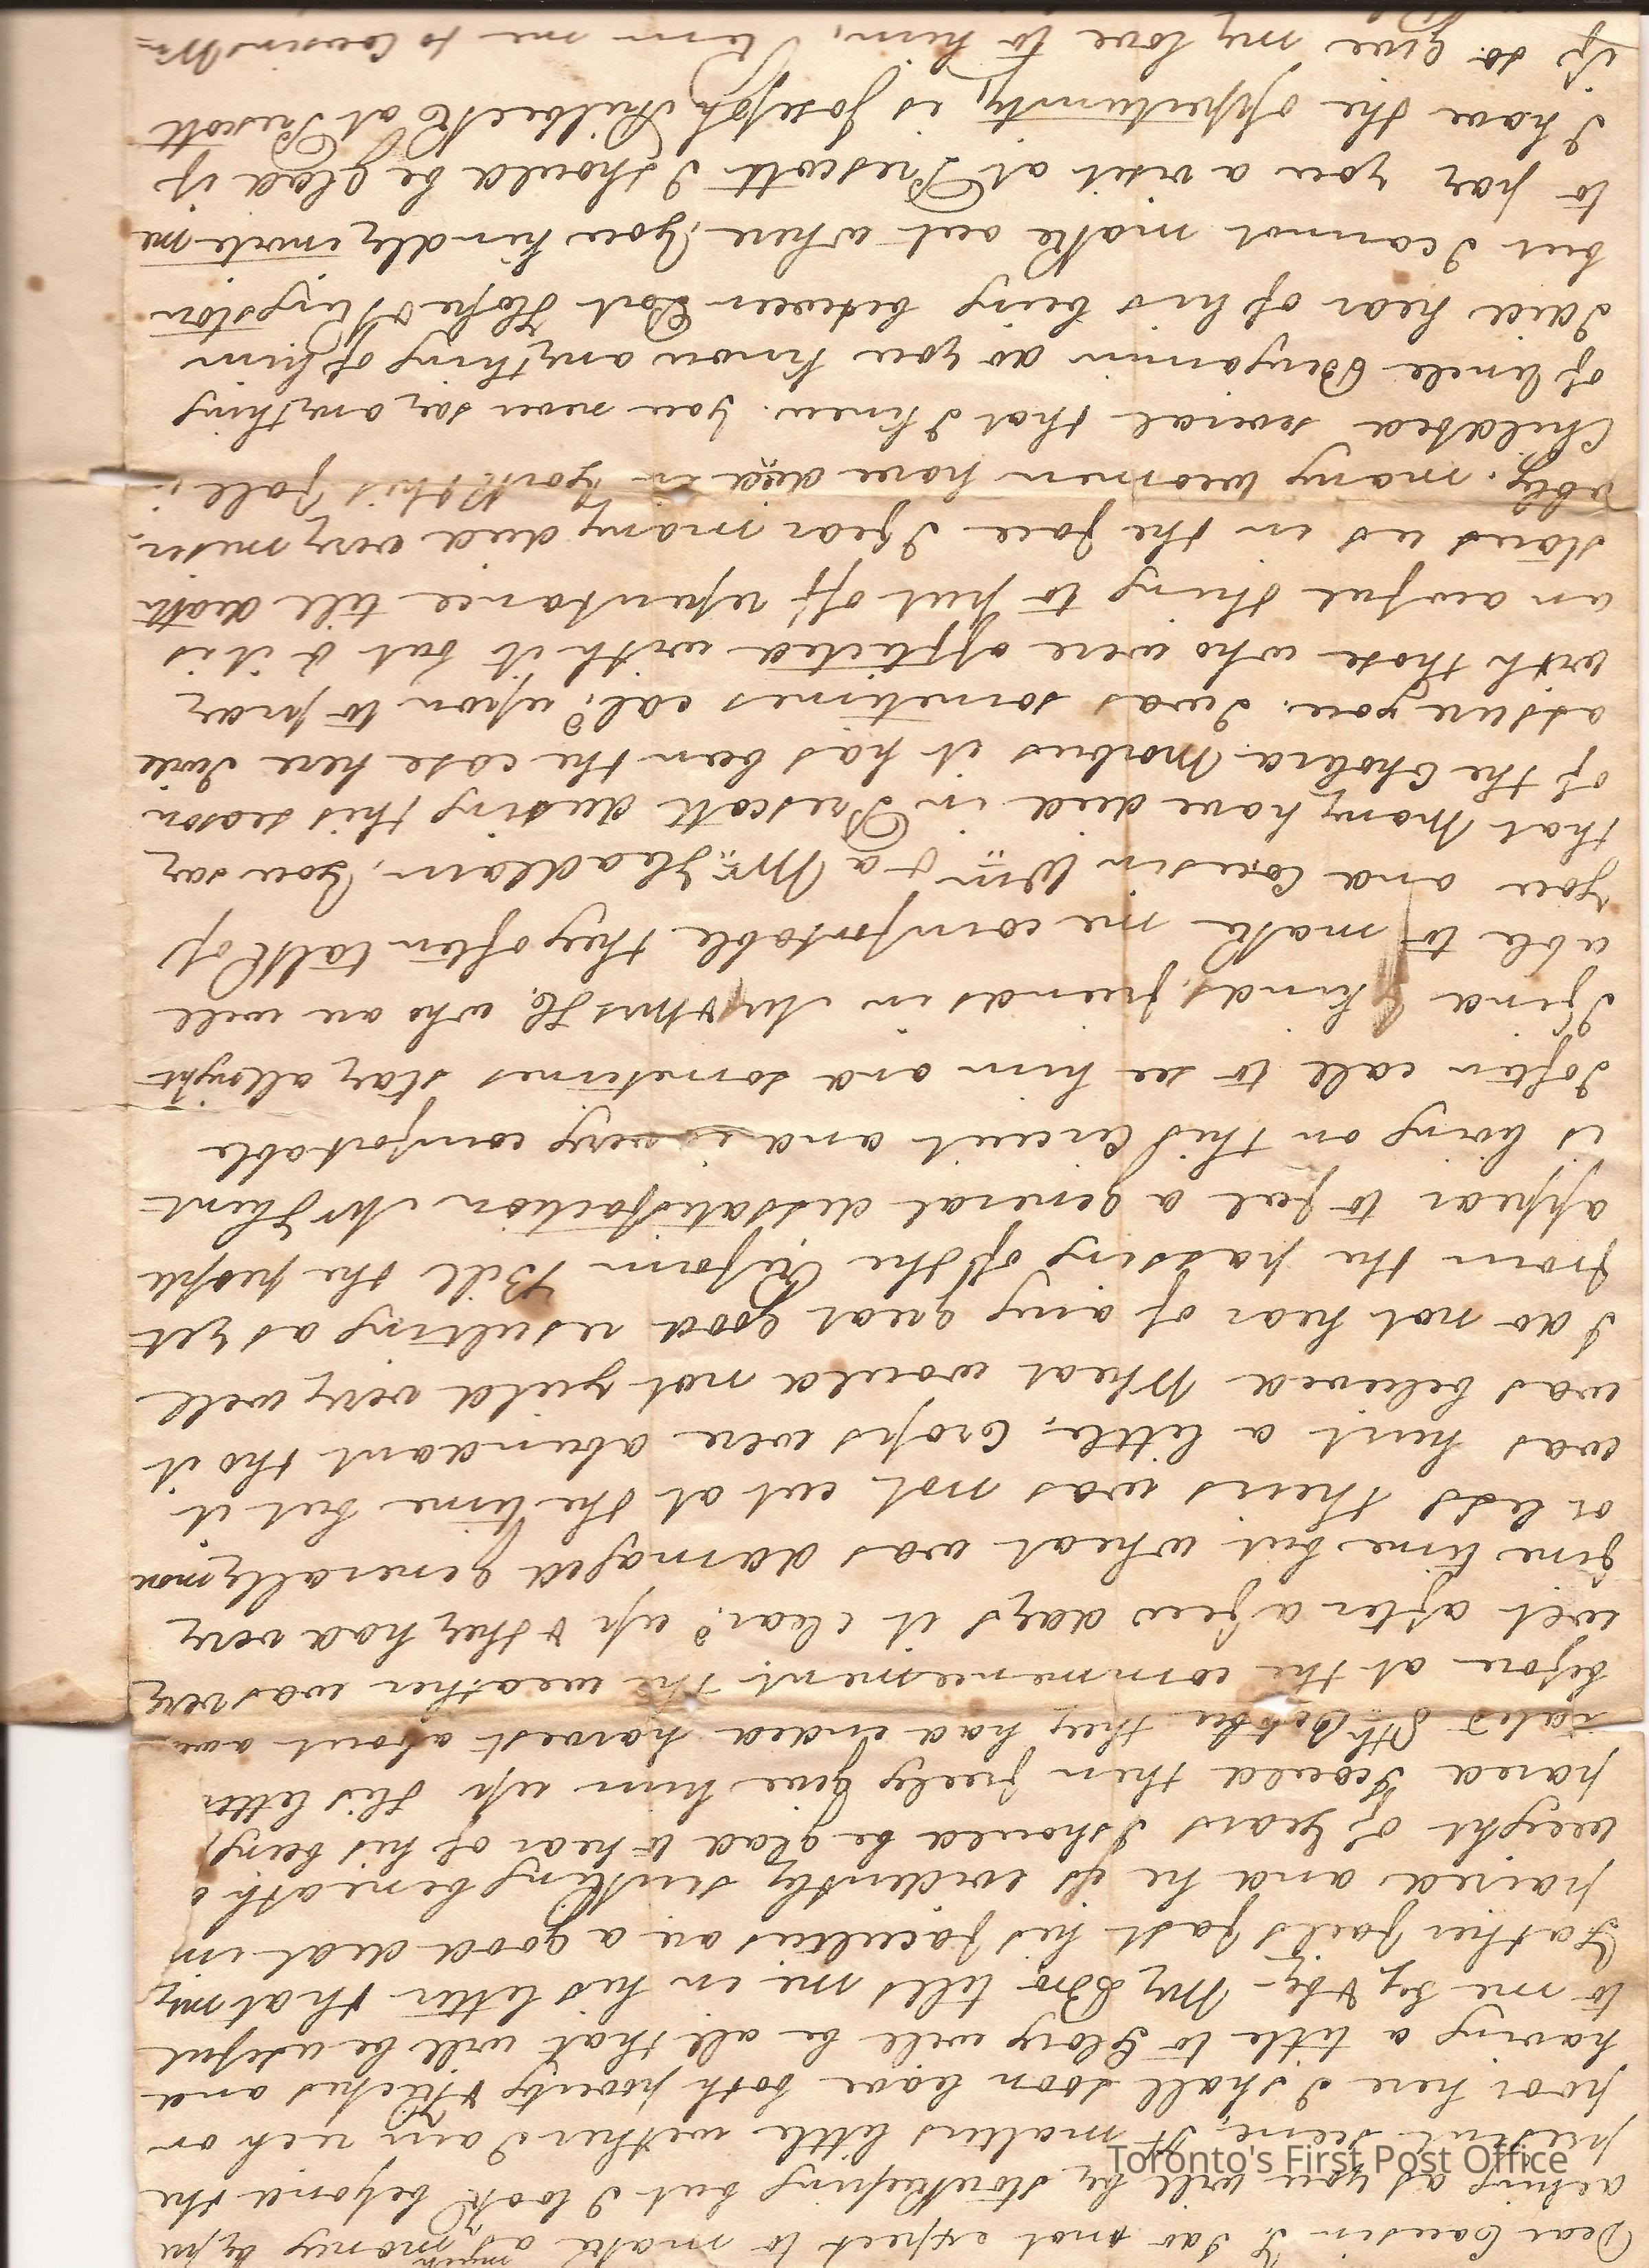 Dear Cousin I do not expect to make as much money by pre
aching as you will by storekeeping but I look beyond the
present scene, It matters little wether I am rich or
poor here I shall soon leave both poverty & Riches and
having a title to Glory will be all that will be useful
to me by & by - My Bro tells me in his letter that my
Father fails fast his faculties are a good deal im
paired and he is evidently sinking beneath a
weight of years I should be glad to hear of his being
pared I could then freely give him up this letter
states 8th October they had ended harvest about a
before at the commencement the weather was very
wet after a few days it clear'd up & they had very
fine time but wheat was damaged generally more
or less theirs was not cut at the time but it
was hurt a little, Crops were abundant tho it
was believed Wheat would not yield very well
I do not hear of any great good resulting as yet
from the passing of the Reform Bill the people
appear to feel a general dissatisfaction Mr Flint
is living on this Circuit and is very comfortable
I often call to see him and sometimes stay allnight
I find kind friends in Mr & Mrs H. who are well
able to make me comfortable they often talk of
you and Cousin Wm & a Mr. Headlam, You say
that Many have died in Prescott during this season
of the Cholera Morbus it has been the case here I will
assure you. I was sometimes call'd upon to pray
with those who were afflicted with it but O it is
an awful thing to put off repentance till death
stares us in the face I fear many died very miser
ably. many women have died in York this fall in
Childbed several that I knew. You never say anything
of Uncle Benjamin do you know anything of him
I did hear of his being between Port Hope & Kingston
but I cannot make out where, You kindly invite me
to pay you a visit at Prescott I should be glad if
I have the oppertunity, is Joseph Philbeck at Prescott
if so give my love to him, Rem me to Cousin Wm
Toronto's First Post Office